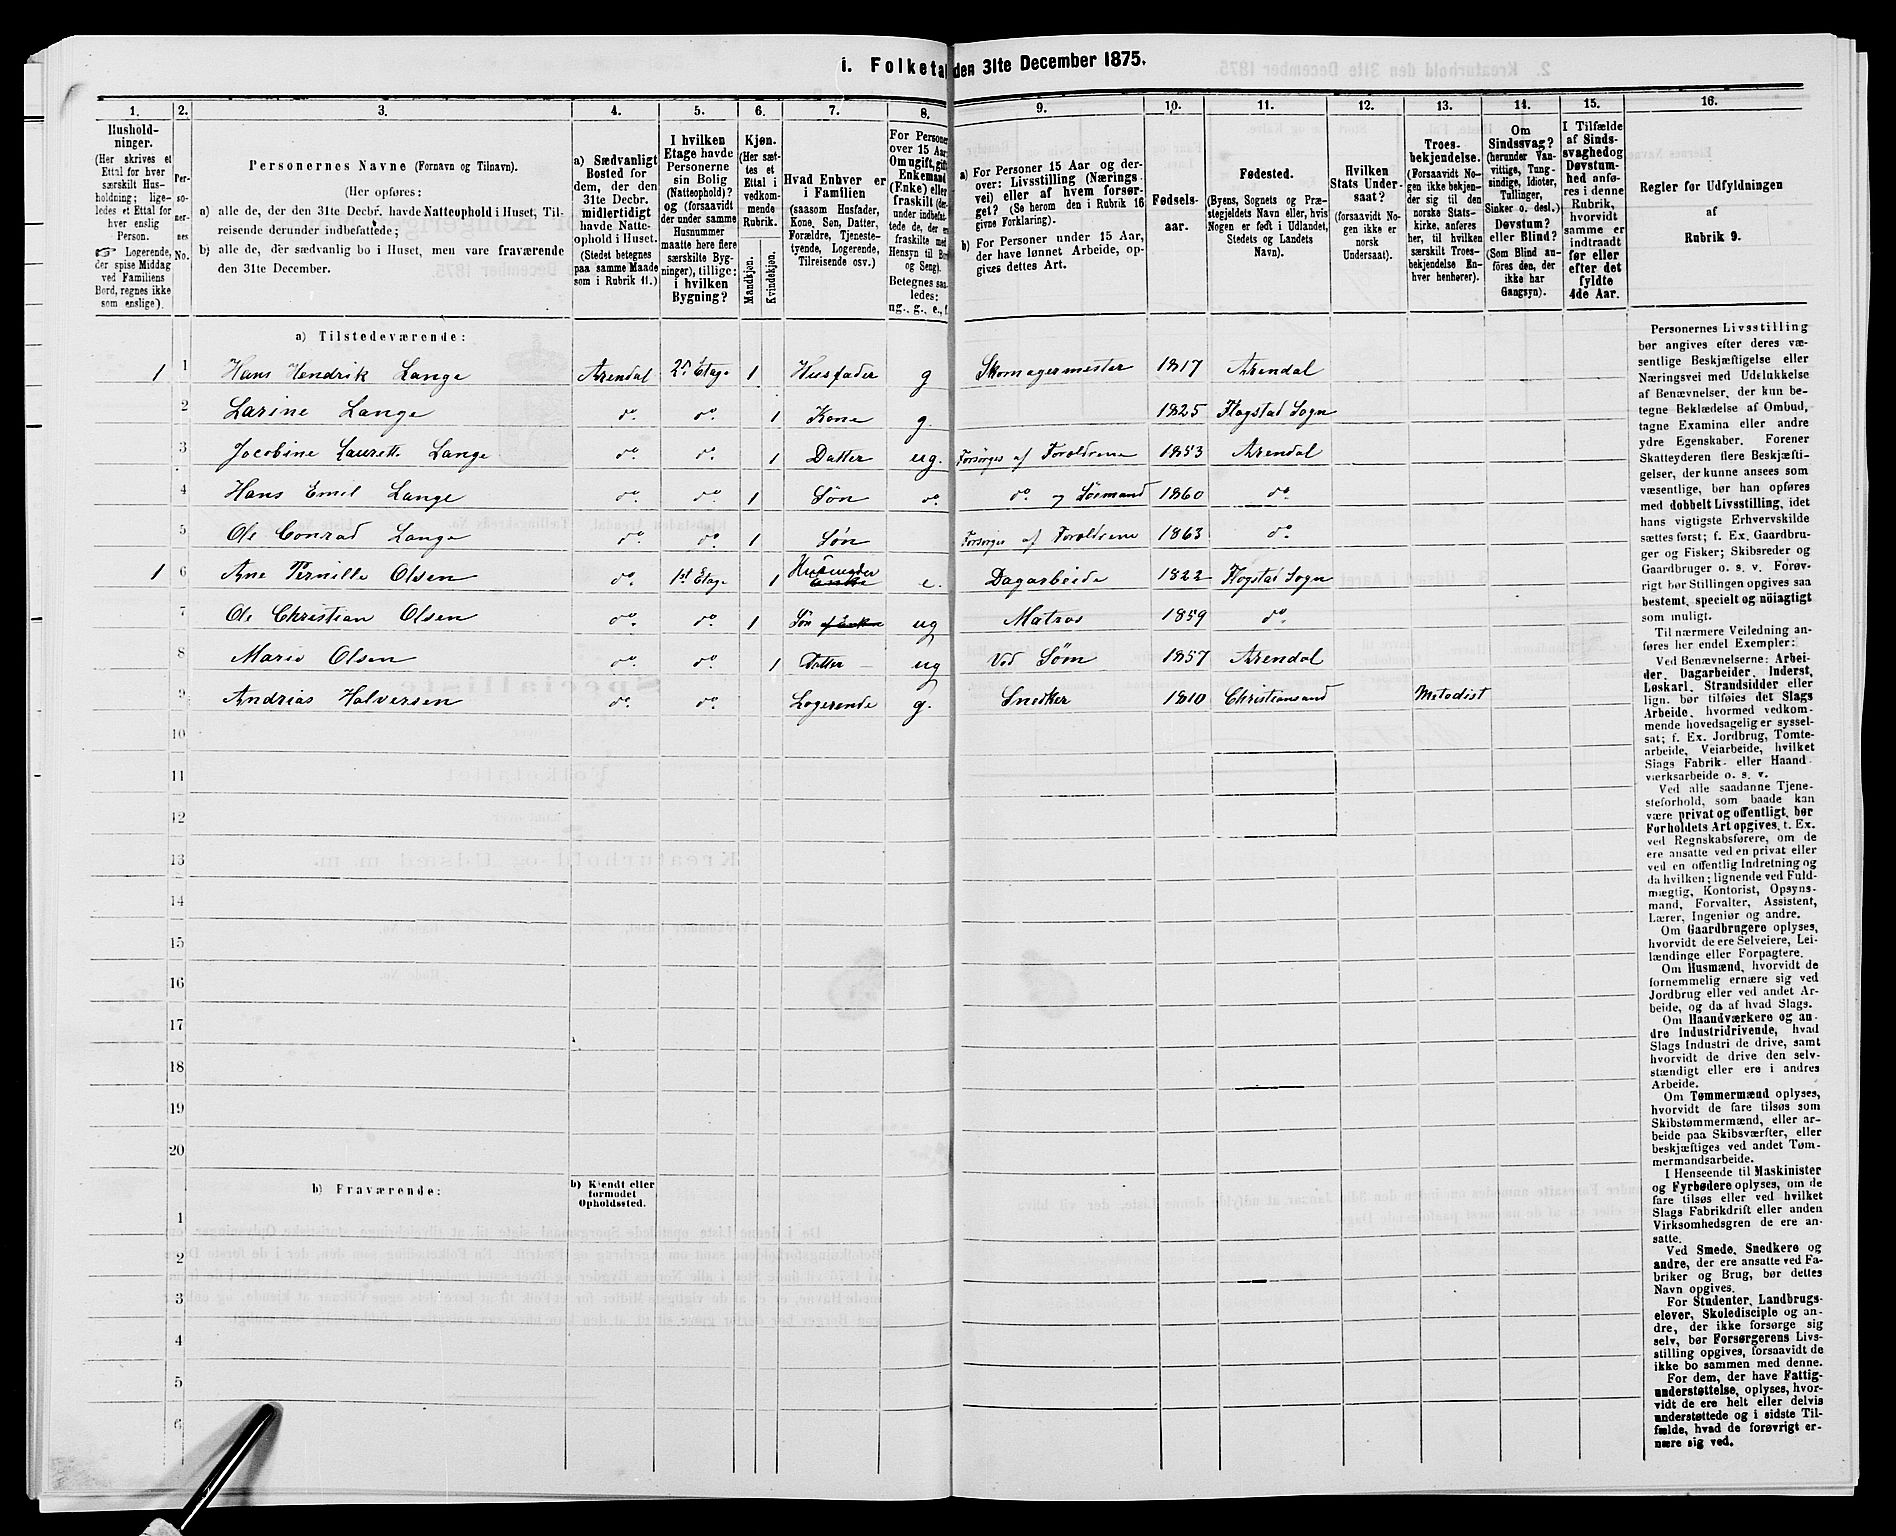 1. Folketa den 31te December 1875.
1. 2. 3. 4. 5. 6. 7. 8. 9. 10. 11. 12. 13. 14. 15. 16.
Hushold-
ninger.
(Her skrives et
Ettal for hver
særskilt Hus-
holdning; lige-
ledes et Ettal for
hver enslig
Person.
Logerende,
der spise Middag
ved Familiens
Bord, regnes ikke
som enslige).
Per-
so-
ner-
nes
No.
Personernes Navne (Fornavn og Tilnavn).
(Her opføres:
a) alle de, der den 31te Decbr. havde Natteophold i Huset, Til-
reisende derunder indbefattede;
b) alle de, der sædvanlig bo i Huset, men vare fraværende
den 31te December.
a) Sædvanligt
Bosted for
dem, der den
31te Decbr.
midlertidigt
havde Natte-
ophold i Huset.
(Stedet betegnes
paa samme Maade
som i Rubrik 11.)
I hvilken
Etage havde
Personerne
sin Bolig
(Natteophold)?
og (forsaavidt
der under samme
Husnummer
maatte høre flere
særskilte Byg-
ninger), tillige:
i hvilken
Bygning?
Kjøn.
(Her sæt-
tes et
Ettal i
vedkom-
mende
Rubrik.)
Mandkjøn.
Kvindekjøn.
Hvad Enhver er
i Familien
(saasom Husfader,
Kone, Søn, Datter,
Forældre, Tjeneste-
tyende, Logerende,
Tilreisende osv.)
For Personer
over 15 Aar:
Om ugift, gift,
Enkemand
(Enke) eller
fraskilt (der-
under indbefat-
tede de, der ere
fraskilte med
Hensyn til Bord
og Seng).
Betegnes saa-
ledes:
ug., g., e., f.
a) For Personer 15 Aar og der-
over: Livsstilling (Nærings-
vei) eller af hvem forsør-
get? (Se herom den i Rubrik 16
givne Forklaring).
b) For Personer under 15 Aar,
der have lønnet Arbeide, op-
gives dettes Art.
Fødsels-
aar.
Fødested.
(Byens, Sognets og Præ-
stegjeldets Navn eller, hvis
Nogen er født i Udlandet,
Stedets og Landets
Navn).
Hvilken
Stats Under-
saat?
(forsaavidt No-
gen ikke er
norsk
Undersaat).
Troes-
bekjendelse.
(Forsaavidt No-
gen ikke bekjen-
der sig til den
norske Stats-
kirke, anføres
her, til hvilken
særskilt Troes-
bekjendelse En-
hver henhører).
Om
Sindssvag?
(herunder Van-
vittige, Tung-
sindige, Idioter,
Tullinger,
Sinker o. desl.)
Døvstum?
eller Blind?
(Som Blind an-
føres den, der
ikke har
Gangsyn).
I Tilfælde
af Sinds-
svaghed og
Døvstum-
hed anfø-
res i denne
Rubrik,
hvorvidt
samme er
indtraadt
før eller
efter det
fyldte
4de Aar.
Regler for Udfyldningen
af
Rubrik 9.
a) Tilstedeværende:
1 1 Hans Hendrik Lange Arendal 2n Etage 1 Husfader g Skomagermester 1817 Arendal
2 Larine Lange do. do. 1 Kone g. 1825 Flagstad Sogn
3 Jacobine Laurette Lange do. do. 1 Datter ug. Forsørges af Foroldrene 1853 Arendal
4 Hans Emil Lange do. do. 1 Søn do. do og Søemand 1860 do.
5 Ole Conrad Lange do. do. 1 Søn Forsørges af Foroldrene 1863 do.
1 6 Ane Pernille Olsen do. 1st Etage 1 Husmoder Enke e. Dagarbeide 1822 Flagstad Sogn
7 Ole Christian Olsen do. do. 1 Søn af Enke ug Matros 1859 do.
8 Marie Olsen do. do. 1 Datter ug Ved Søm 1857 Arendal
9 Andrias Halversen do. do. Logerende g. Snedker 1810 Christiansand Metodist
10
11
12
13
14
15
16
17
18
19
20
b) Fraværende:
b) Kjendt eller
formodet
Opholdssted.
1
2
3
4
5
6
Personernes Livsstilling
bør angives efter deres væ-
sentlige Beskjæftigelse eller
Næringsvei med Udelukkelse
af Benævnelser, der kun be-
tegne Beklædelse af Ombud,
tagne Examina eller andre
ydre Egenskaber. Forener
Skatteyderen flere Beskjæfti-
gelser, der kunne ansees som
væsentlige, bør han opføres
med dobbelt Livsstilling, idet
hans vigtigste Erhvervskilde
sættes først; f. Ex. Gaardbru-
ger og Fisker; Skibsreder og
Gaardbruger o. s. v. Forøv-
rigt bør Stillingen opgives saa
bestemt, specielt og nöiagtigt
som muligt.
Til nærmere Veiledning an-
føres her endel Exempler:
Ved Benævnelserne: Arbei-
der, Dagarbeider, Inderst,
Løskarl, Strandsidder eller
lign. bør tilføies det Slags
Arbeide, hvormed vedkom-
mende hovedsagelig er syssel-
sat; f. Ex. Jordbrug, Tomte-
arbeide, Veiarbeide, hvilket
Slags Fabrik- eller Haand-
værksarbeide o. s. v.
Ved alle saadanne Tjene-
steforhold, som baade kan
være privat og offentligt, bør
Forholdets Art opgives, t. Ex.
ved Regnskabsførere, om de
ere ansatte ved en privat eller
ved en offentlig Indretning og
da hvilken; lignende ved Fuld-
mægtig, Kontorist, Opsyns-
mand, Forvalter, Assistent,
Lærer, Ingeniør og andre.
Om Gaardbrugere oplyses,
hvorvidt de ere Selveiere, Lei-
lændinge eller Forpagtere.
Om Husmænd, hvorvidt de
fornemmelig ernære sig ved
Jordbrug eller ved andet Ar-
beide, og da af hvad Slags.
Om Haandværkere og an-
dre Industridrivende, hvad
Slags Industri de drive, samt
hvorvidt de drive den selv-
stændigt eller ere i andres
Arbeide.
Om Tømmermænd oplyses,
hvorvidt de fare tilsøs som
Skibstømmermænd, eller ar-
beide paa Skibsværfter, eller
beskjæftiges ved andet Tøm-
mermandsarbeide.
I Henseende til Maskinister
og Fyrbødere oplyses, om de
fare tilsøs eller ved hvilket
Slags Fabrikdrift eller anden
Virksomhedsgren de ere an-
satte.
Ved Smede, Snedkere og
andre, der ere ansatte ved Fa-
briker og Brug, bør dettes
Navn opgives.
For Studenter, Landbrugs-
elever, Skoledisciple og an-
dre, der ikke forsørge sig
selv, bør Forsørgerens Livs-
stilling opgives, forsaavidt de
ikke bo sammen med denne.
For dem, der have Fattig-
understøttelse, oplyses, hvor-
vidt de ere helt eller delvis
understøttede og i sidste Til-
fælde, hvad de forøvrigt er-
nære sig ved.